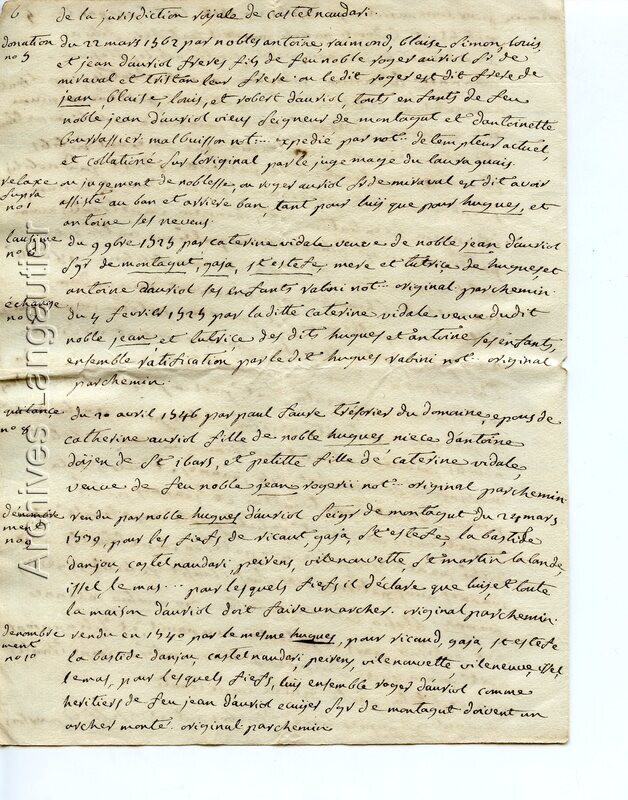 6 de la jurisdiction royale de castelnaudari.
donation no 5 du 22 mars 1562 par nobles antoine, raimond, blaise, simon, louis,
et jean d'auriol freres fils de feu noble roger auriol sr de
miraval et tristan leur frere ou le dit roger est dit frere de
jean, blaise, louis, et robert d'auriol, touts enfants de feu
noble jean d'auriol vieux seigneur de montagut et d'antoinette
bourrassier. malbuisson not... expedié par not... de l'empteur actuel
et collationé sur l'original par le juge mage du lauraguais.
relaxe supra no 1 au jugement de noblesse, ou roger auriol sr de miraval est dit avoir
assisté au ban et arriere ban, tant pour luis que pour hugues, et
antoine ses neveus.
lausime no du 9 9bre 1525 par caterine vidale veuve de noble jean d'auriol
sgr de montagut, gaja, st estefe, mere et tutrice de hugues, et
antoine d'auriol ses enfants rabini not... original parchemin.
échange no du 4 fevrier 1525 par la ditte caterine vidale veuve du dit
noble jean et tutrice des dits hugues et antoine ses enfants,
ensemble ratification par le dit hugues rabini not... original
parchemin.
quitance no 8 du 20 avril 1546 par paul faure trésorier du domaine, epous de
catherine auriol fille de noble hugues niece d'antoine
doijen de st ibars, et petitte fille de caterine vidale,
veuve de feu noble jean rogerii not... original parchemin.
dénombrement no 9 rendu par noble hugues d'auriol seigr de montagut du 24 mars
1539, pour les fiefs de ricaut, gaja, st estefe, la bastide
danjou, castelnaudari, peirens, vilenouvette, st martin la lande,
issel, le mas... pour lesquels fiefs il déclare que luis et toute
la maison d'auriol doit faire un archer. original parchemin.
denombrement no 10 rendu en 1540 par le mesme hugues, pour ricaud, gaja, st estefe
la bastide danjou, castelnaudari, peirens, vilenouvette, vileneuve, issel,
le mas, pour lesquels fiefs, luis ensemble roger d'auriol comme
heritiers de feu jean d'auriol ecuijer sgr de montagut doivent un
archer monté. original parchemin
Archives Langautier